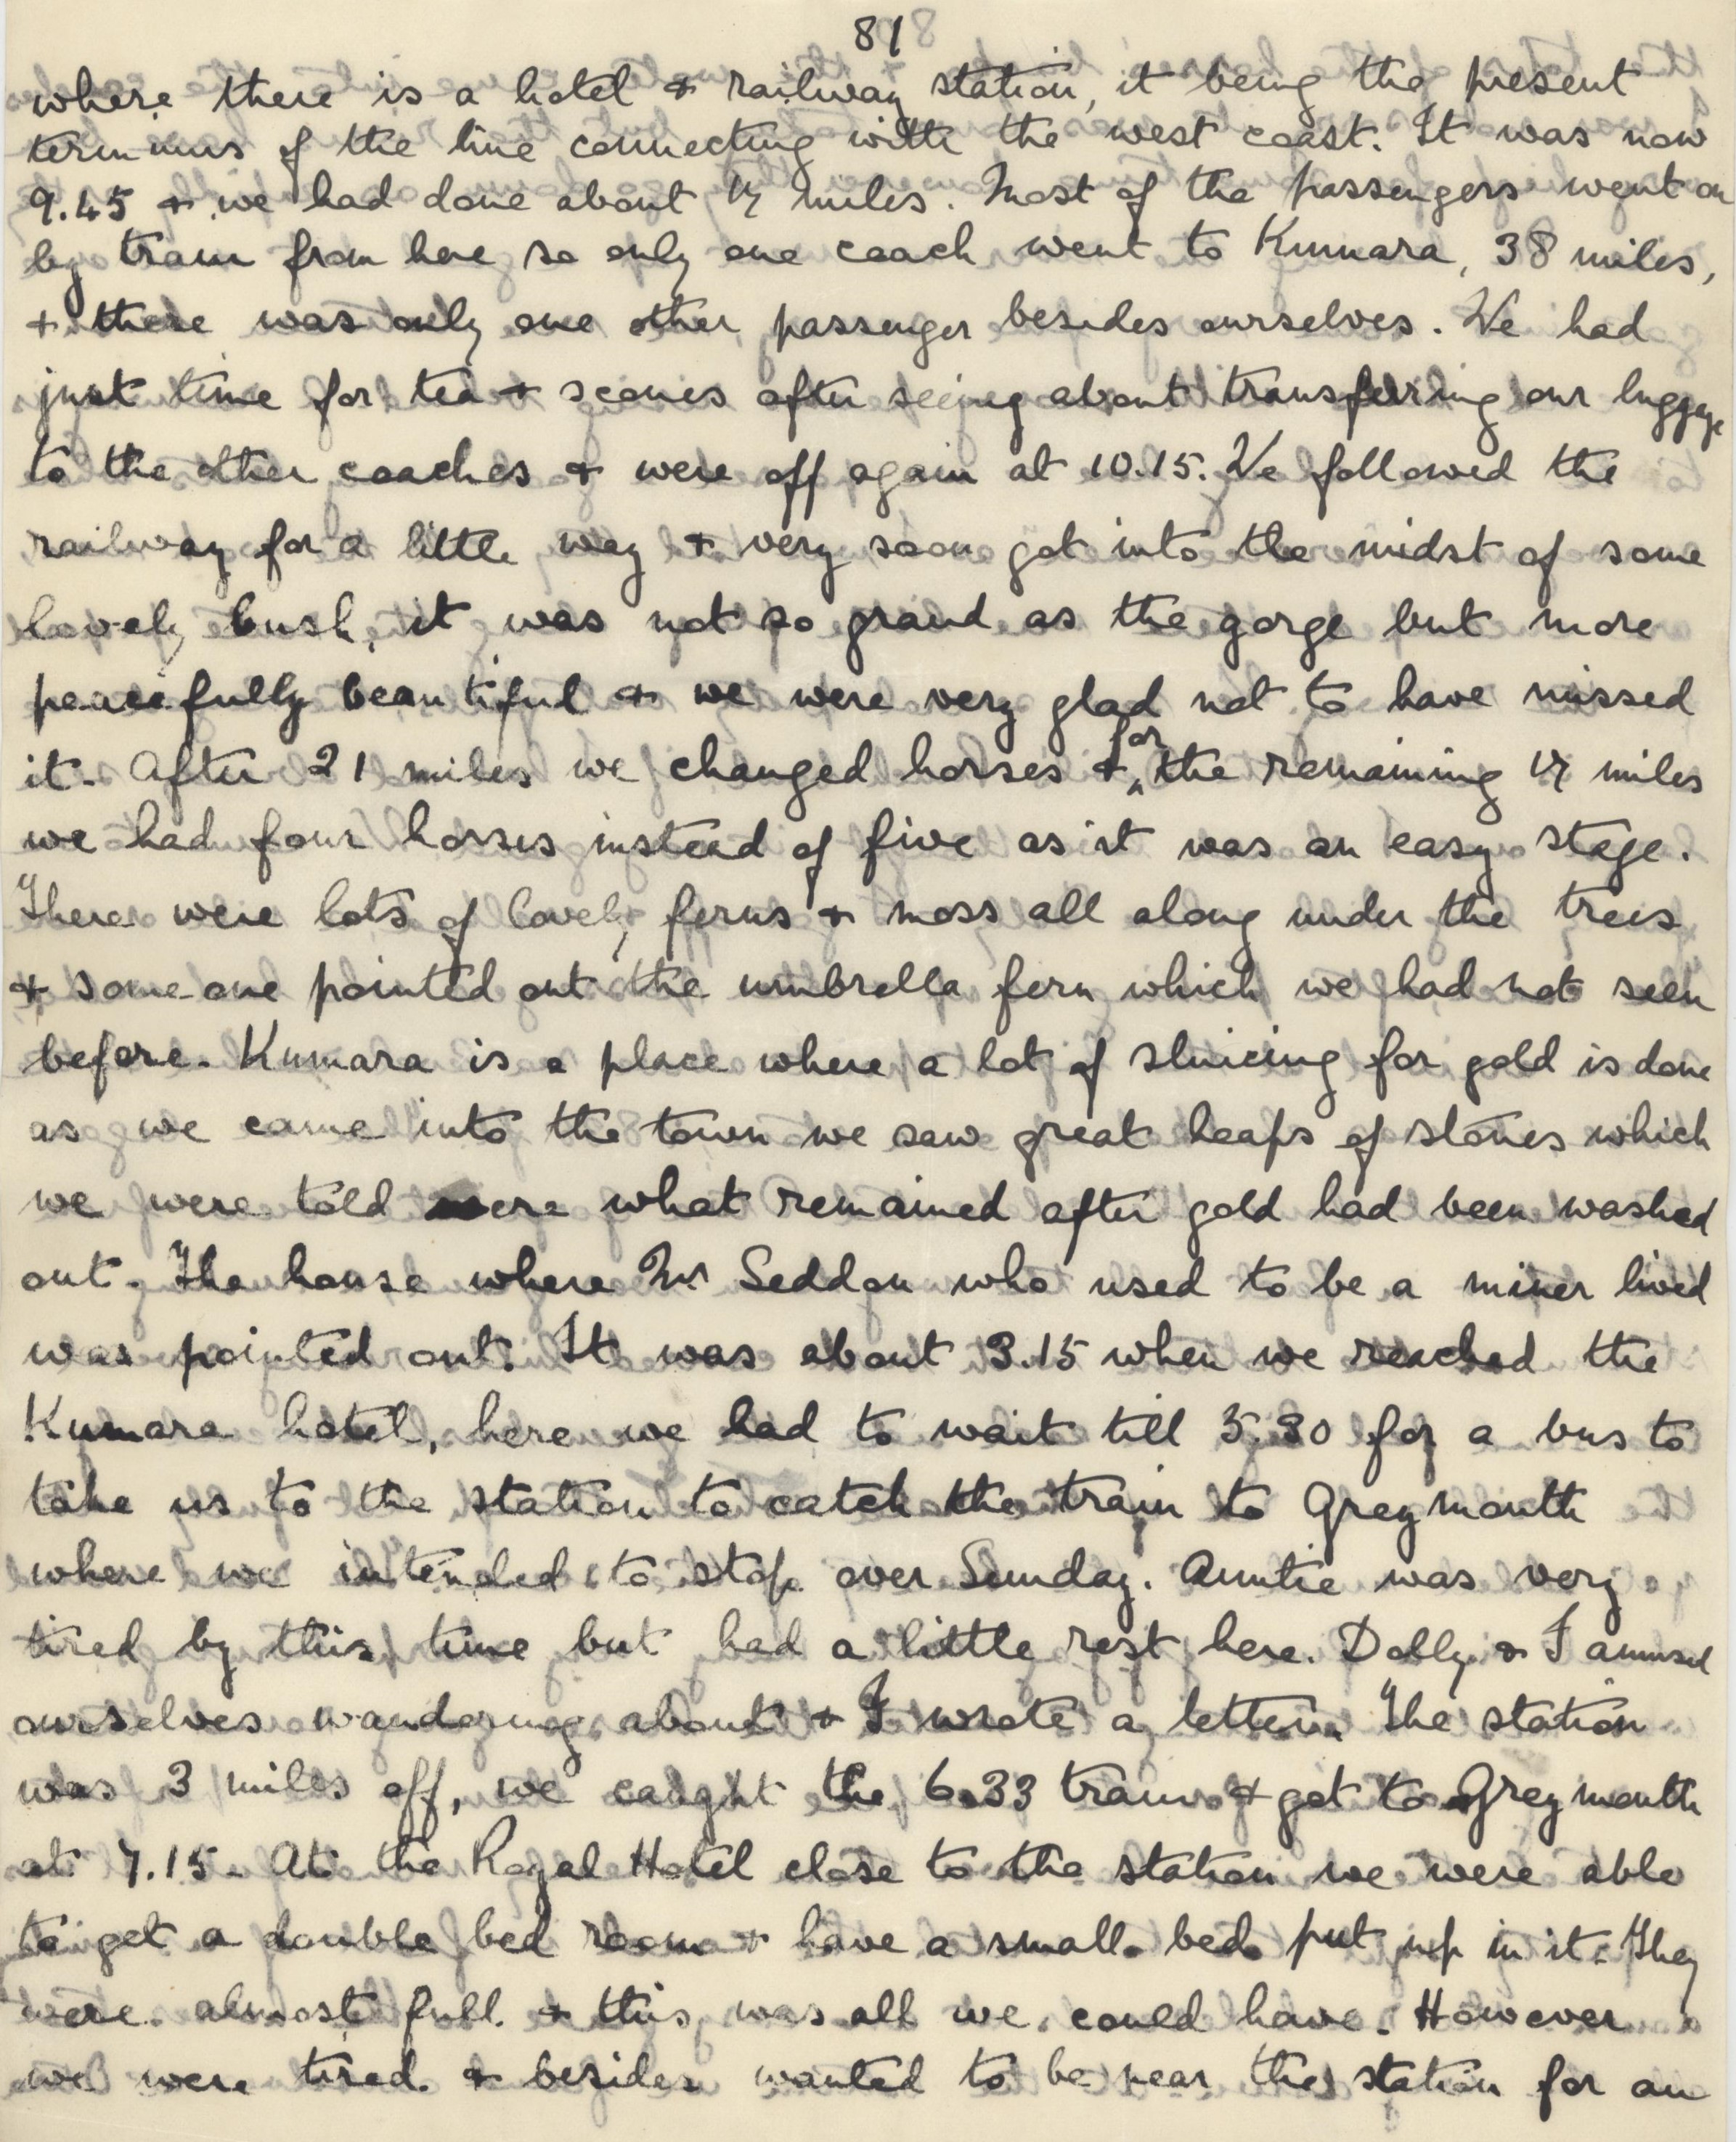 81
where there is a hotel & railway station, it being the present
terminus of the line connecting with the west coast. It was now
9.45 & we had done about 17 miles. Most of the passengers went on
by train from here so only one coach went to Kumara, 38 miles,
& there was only one other passenger besides ourselves. We had
just time for tea & scones after seeing about transferring our luggage
to the other coaches & were off again at 10.15. We followed the
railway for a little way & very soon got into the midst of some
lovely bush, it was not so grand as the gorge but more
peacefully beautiful & we were very glad not to have missed
it. After 21 miles we changed horses & for the remaining 17 miles
we had four horses instead of five as it was an easy stage.
There were lots of lovely ferns & moss all along under the trees
& some one pointed out the umbrella fern which we had not seen
before. Kumara is a place where a lot of sluicing for gold is done
as we came into the town we saw great heaps of stones which
we were told were what remained after gold had been washed
out. The house where Mr Seddon who used to be a miner lived
was pointed out. It was about 3.15 when we reached the
Kumara hotel, here we had to wait till 5.30 for a bus to
take us to the station to catch the train to Greymouth
where we intended to stop over Sunday. Auntie was very
tired by this time but had a little rest here. Dolly & I amused
ourselves wandering about & I wrote a letter. The station
was 3 miles off, we caught the 6.33 train & got to Greymouth
at 7.15. At the Royal Hotel close to the station we were able
to get a double bed room & have a small bed put up in it. They
were almost full & this was all we could have. However
we were tired & besides wanted to be near the station for an